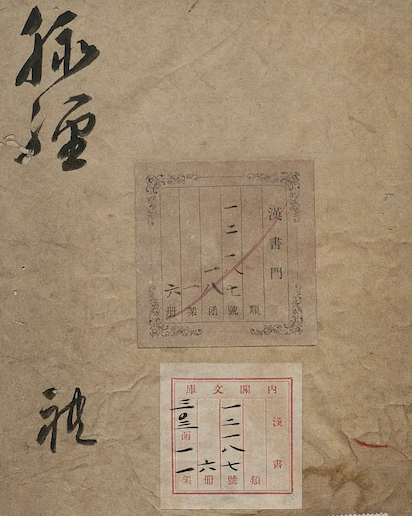 脉經
漢書門
類
一二一八七號
一八函
一架
六册
內閣文庫
漢書
類
一二一八七號
六册
三〇三函
一一架